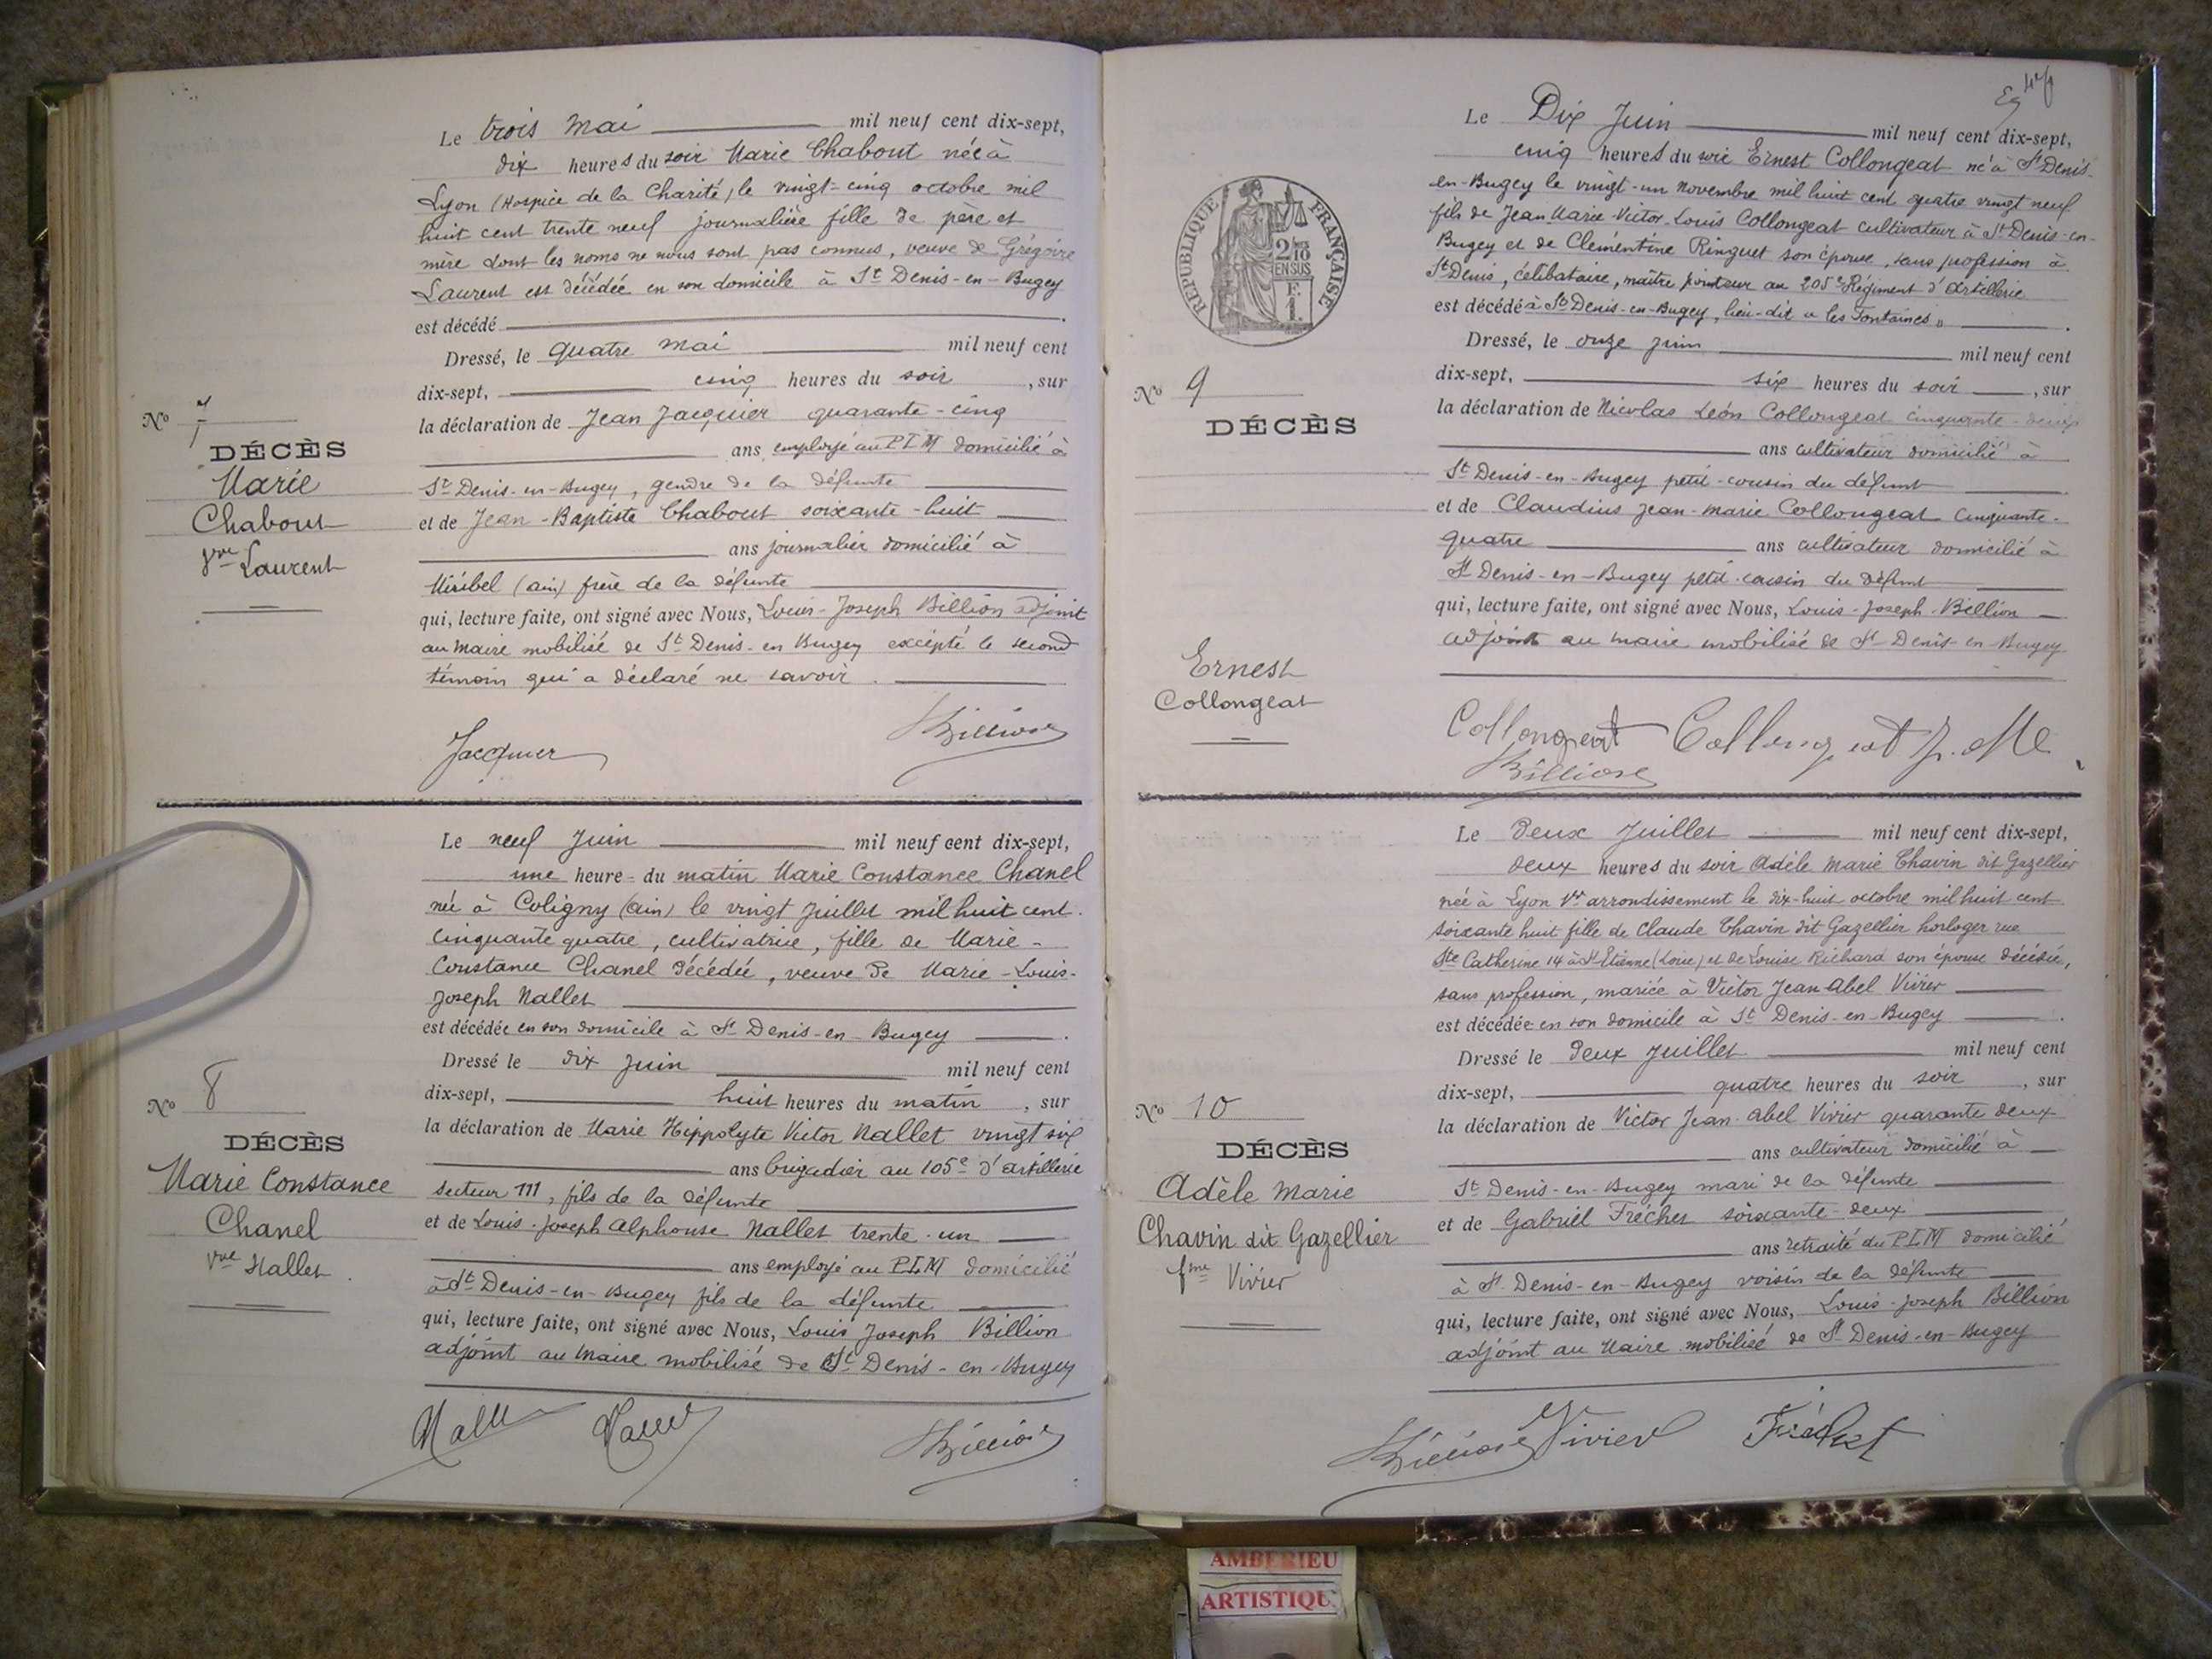 Le trois Mai mil neuf cent dix-sept,
dix heures du soir Marie Chabout née à
Lyon (Hospice de la Charité) le vingt-cinq octobre mil
huit cent trente neuf journalière fille de père et
mère dont les noms ne nous sont pas connus, veuve de Grégoire
Laurent est décédée en son domicile à St Denis-en-Bugey
est décédé .
Dressé, le quatre mai mil neuf cent
dix-sept, cinq heures du soir , sur
la déclaration de Jean Jacquier quarante-cinq
ans, employé au P L M domicilié à
St Denis-en-Bugey, gendre de la défunte
et de Jean-Baptiste Chabout soixante-huit
ans journalier domicilié à
Miribel (ain) frère de la défunte
qui, lecture faite, ont signé avec Nous, Louis-Joseph Billion adjoint
au Maire mobilisé de St Denis-en Bugey excepté le second
témoin qui a déclaré ne savoir.
Jacquier Billion
No 7
DÉCÈS
Marie
Chabout
Vve Laurent
Le neuf Juin mil neuf cent dix-sept,
une heure du matin Marie Constance Chanel
née à Coligny (ain) le vingt Juillet mil huit cent
cinquante quatre, cultivatrice, fille de Marie-
Constance Chanel décédée, veuve de Marie-Louis-
Joseph Nallet
est décédée en son domicile à St Denis-en-Bugey .
Dressé le dix Juin mil neuf cent
dix-sept, huit heures du matin , sur
la déclaration de Marie Hippolyte Victor Nallet vingt six
ans brigadier au 105e d'artillerie
secteur 111, fils de la défunte
et de Louis-Joseph Alphonse Nallet trente-un
ans employé au P.L.M domicilié
à St Denis-en-Bugey fils de la défunte
qui, lecture faite, ont signé avec Nous, Louis Joseph Billion
adjoint au Maire mobilisé de St Denis-en-Bugey
Billion
No 8
DÉCÈS
Marie Constance
Chanel
Vve Nallet
Le Dix Juin mil neuf cent dix-sept,
cinq heures du soir Ernest Collongeat né à St Denis-
en-Bugey le vingt-un Novembre mil huit cent quatre vingt neuf
fils de Jean Marie-Victor-Louis Collongeat cultivateur à St Denis-en-
Bugey et de Clémentine Ringuet son épouse, sans profession à
St Denis, célibataire, maître pointeur au 205e Régiment d'Artillerie
est décédé à St Denis-en-Bugey, lieu-dit « les Fontaines » .
Dressé, le onze juin mil neuf cent
dix-sept, six heures du soir , sur
la déclaration de Nicolas Léon Collongeat cinquante-deux
ans cultivateur domicilié à
St Denis-en-Bugey petit-cousin du défunt
et de Claudius Jean-Marie Collongeat cinquante-
quatre ans cultivateur domicilié à
St Denis-en-Bugey petit-cousin du défunt
qui, lecture faite, ont signé avec Nous, Louis-Joseph-Billion
adjoint au maire mobilisé de St Denis-en-Bugey
Collongeat Collongeat J. Me
Billion
RÉPUBLIQUE FRANÇAISE
2/10
EN SUS
F.
1.
No 9
DÉCÈS
Ernest
Collongeat
Le Deux Juillet mil neuf cent dix-sept,
deux heures du soir Adèle Marie Chavin dit Gazellier
née à Lyon 1er arrondissement le dix-huit octobre mil huit cent
soixante huit fille de Claude Chavin dit Gazellier horloger rue
Ste Catherine 14 à St Etienne (Loire) et de Louise Richard son épouse décédée,
sans profession, mariée à Victor Jean Abel Vivier
est décédée en son domicile à St Denis-en-Bugey .
Dressé le Deux Juillet mil neuf cent
dix-sept, quatre heures du soir , sur
la déclaration de Victor Jean-Abel Vivier quarante deux
ans cultivateur domicilié à
St Denis-en-Bugey mari de la défunte
et de Gabriel Fréchet soixante-deux
ans retraité du P L M domicilié
à St Denis-en-Bugey voisin de la défunte
qui, lecture faite, ont signé avec Nous, Louis-Joseph Billion
adjoint au Maire mobilisé de St Denis-en-Bugey
Billion Vivier Fréchet
No 10
DÉCÈS
Adèle Marie
Chavin dit Gazellier
fme Vivier
AMBERIEU
ARTISTIQU